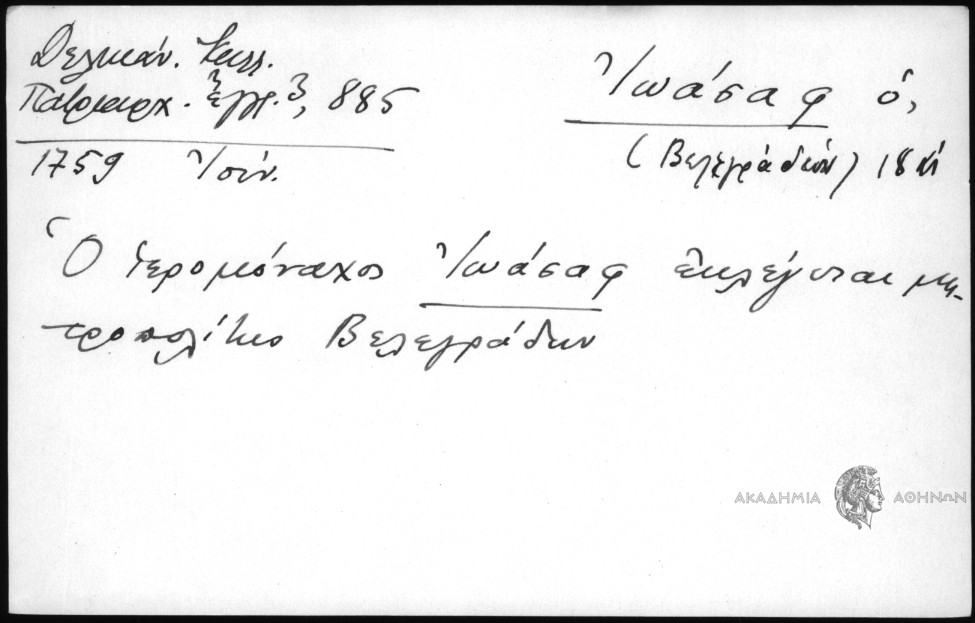 Δελικάν. Καλλ.
Πατριαρχ. Ἔγγρ. 3, 885
1759 Ἰουν.
Ἰωάσαφ ὁ,
(Βελεγράδων) 18
Ὁ ἱερομόναχος Ἰωάσαφ ἐκλέγεται μη-
τροπολίτης Βελεγράδων
ΑΚΑΔΗΜΙΑ ΑΘΗΝΩΝ